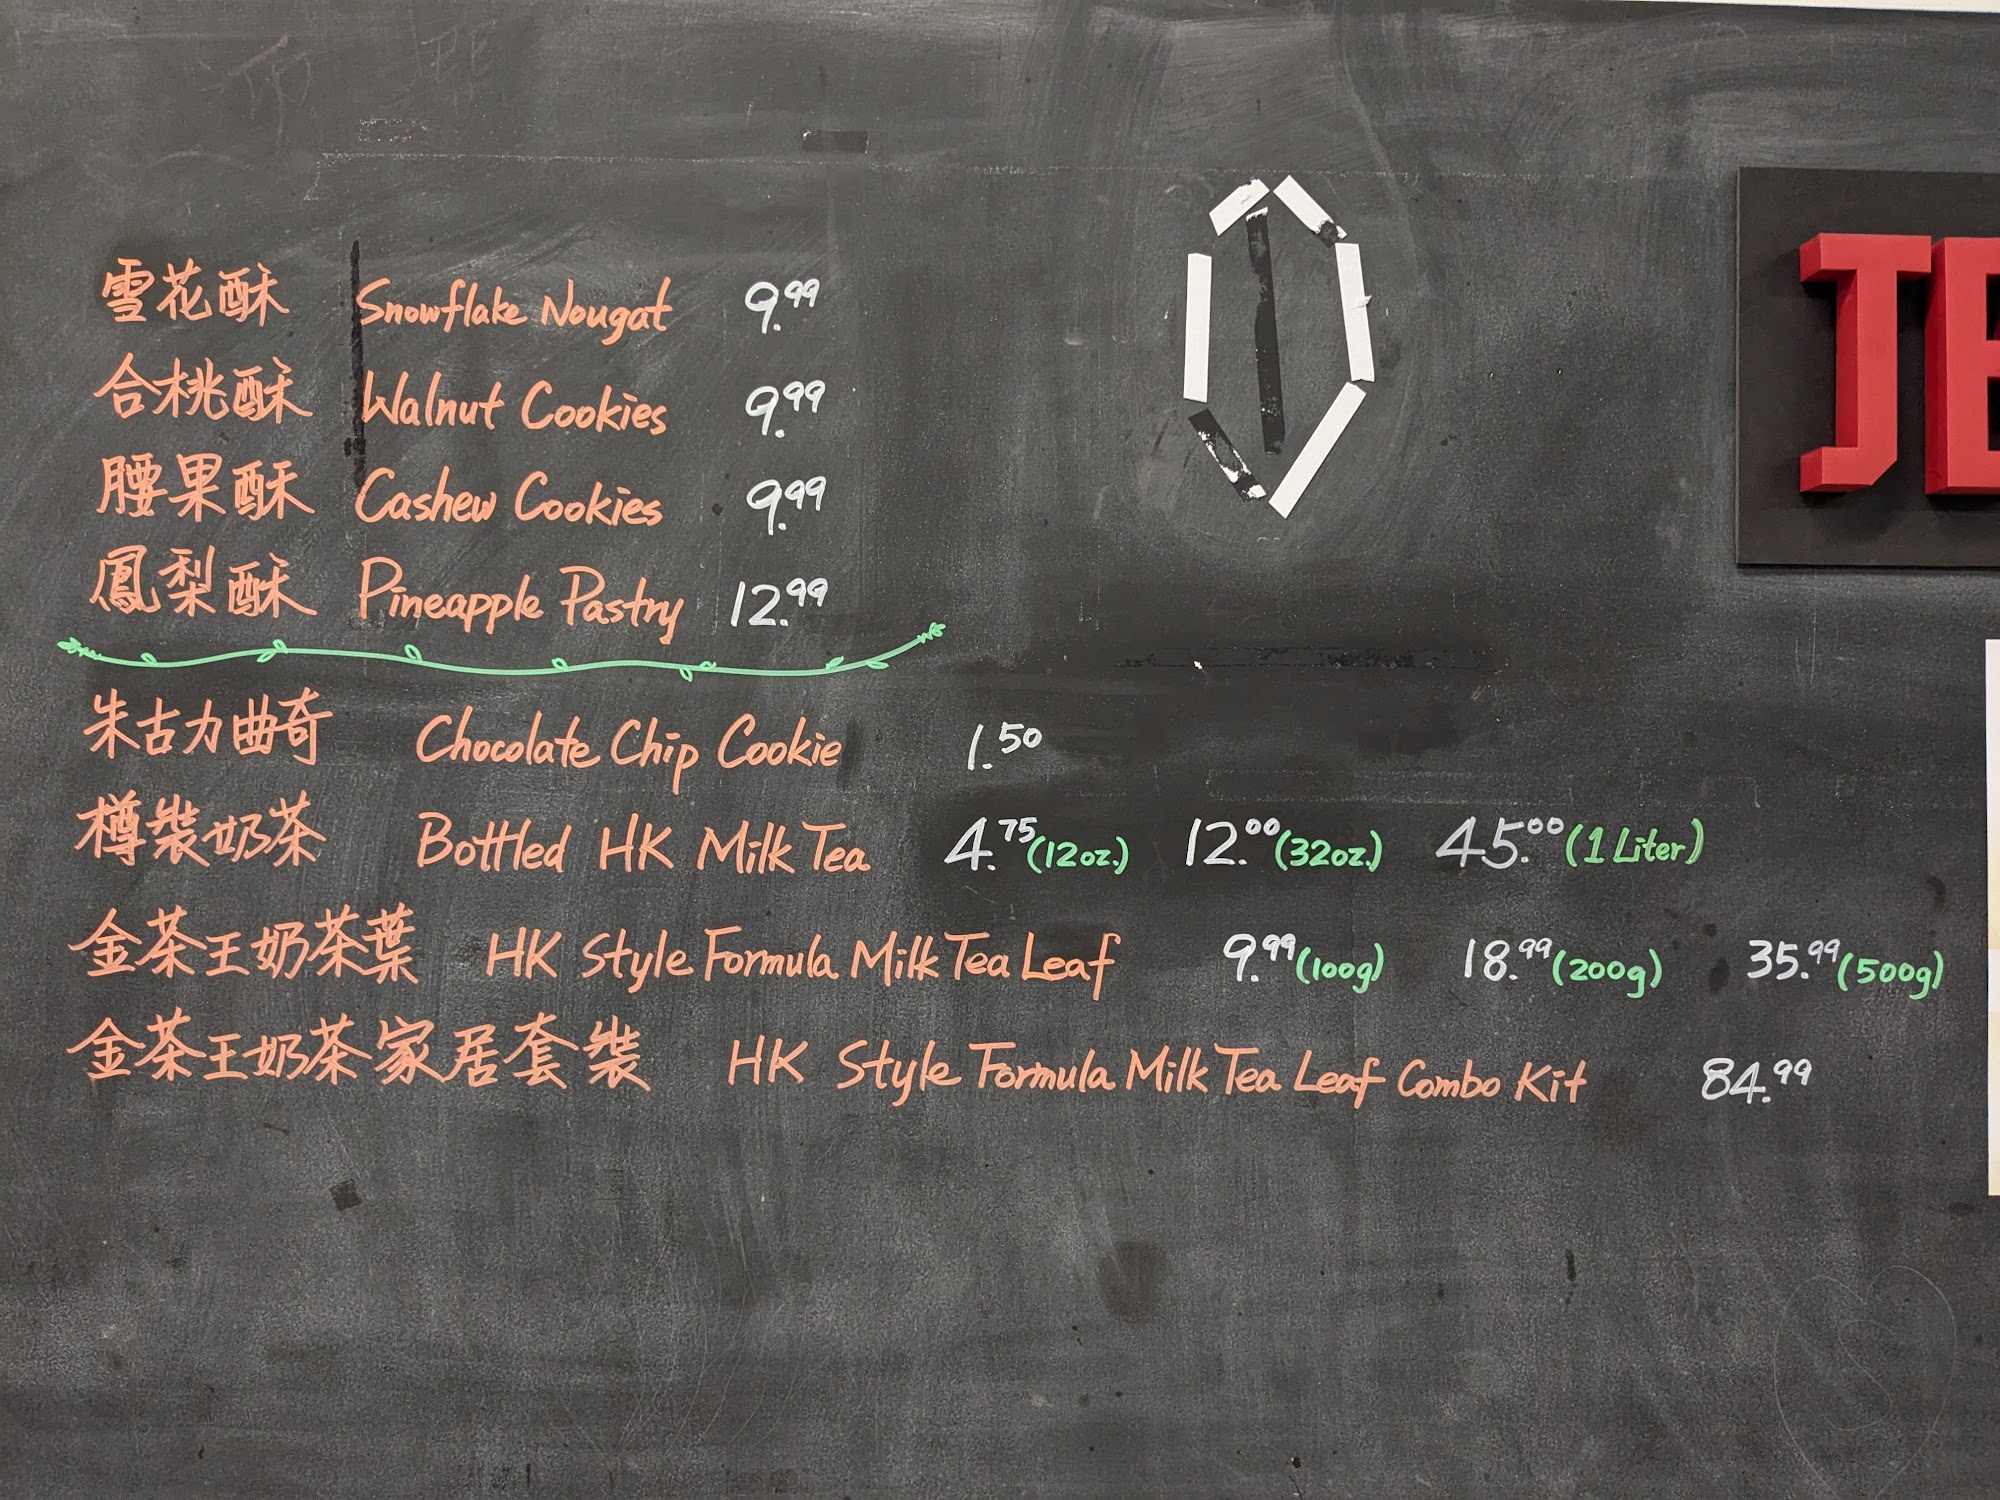 雪花酥 Snowflake Nougat 9.99
合桃酥 Walnut Cookies 9.99
腰果酥 Cashew Cookies 9.99
鳳梨酥 Pineapple Pastry 12.99
朱古力曲奇 Chocolate Chip Cookie 1.50
樽裝奶茶 Bottled HK Milk Tea 4.75 (12oz.) 12.00 (32oz.) 45.00 (1 Liter)
金茶王奶茶葉 HK Style Formula Milk Tea Leaf 9.99 (100g) 18.99 (200g) 35.99 (500g)
金茶王奶茶家居套裝 HK Style Formula Milk Tea Leaf Combo Kit 84.99